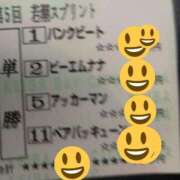 第5回 若潮スプリント
単勝
1 バンクビート
2 ビーエムナナ
5 アッカーマン
11 ベアバッキューン
☆☆☆☆